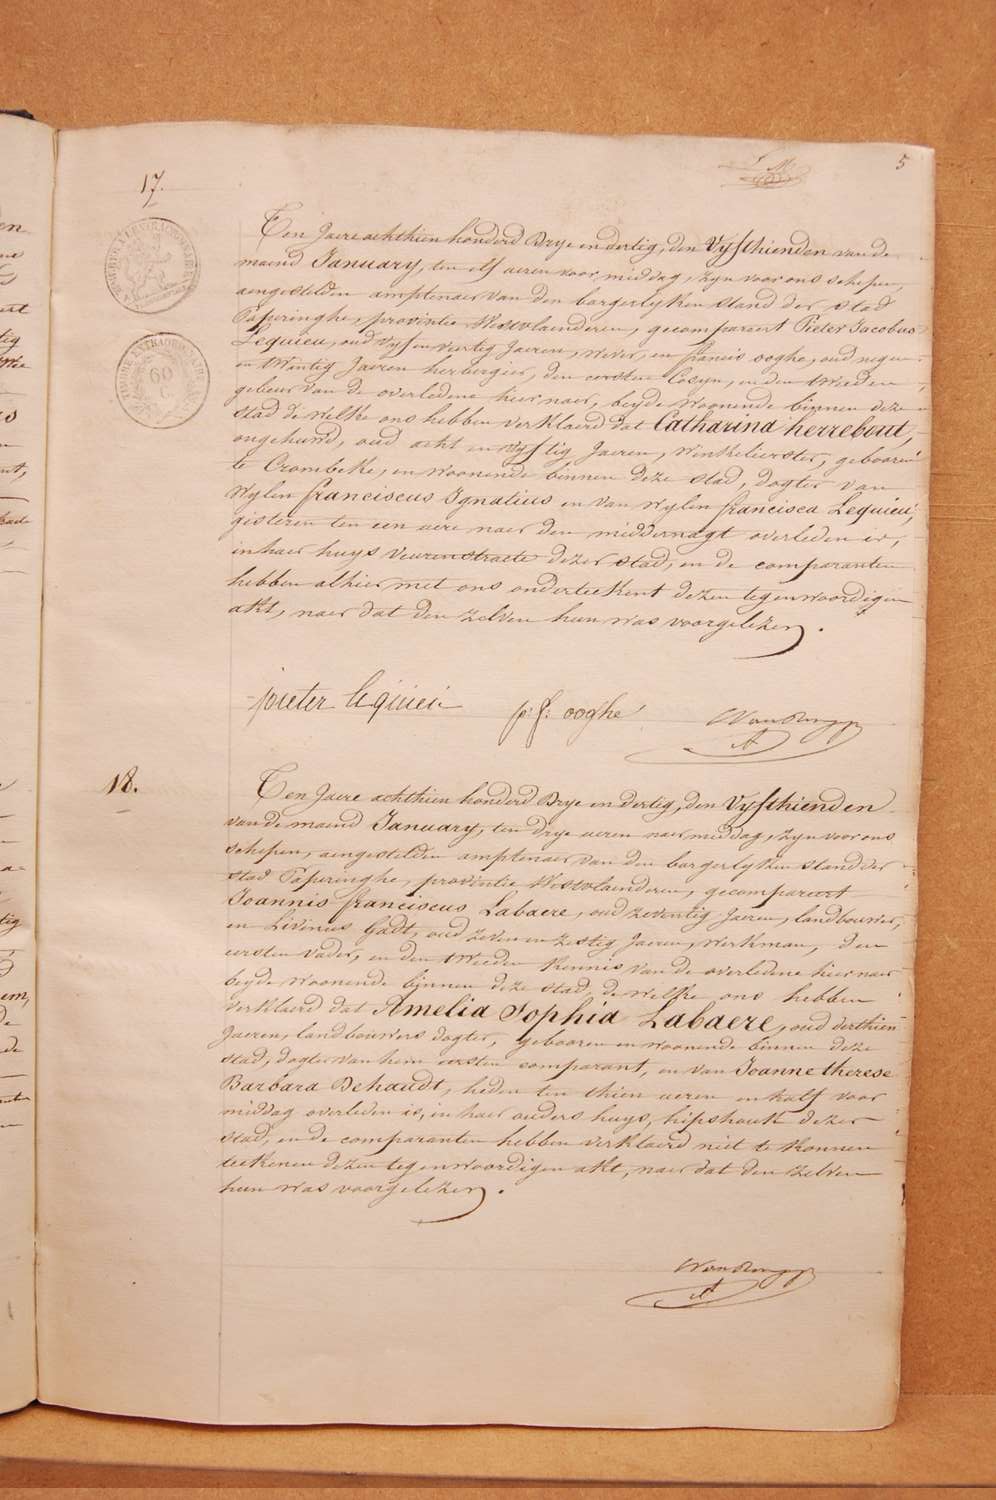 5
17.
Ten Jaere achthien honderd Drye en dertig, den Vyfthienden van de
maend January, ten elf ueren voor middag, zyn voor ons schepen,
aengestelden amptenaer van den borgerlyken stand der stad
Poperinghe, provintie Westvlaenderen, gecompareert Pieter Jacobus
Lequieu, oud vyf en veertig Jaeren, wever, en francis ooghe, oud negen
en twintig Jaeren herbergier, den eersten Cosyn, en den tweeden
gebeur van de overledene hier naer, beyde woonende binnen deze
stad de welke ons hebben verklaerd dat Catharina herrebout,
ongehuwd, oud acht en vyftig Jaeren, winkelierster, gebooren
te Crombeke, en woonende binnen deze stad, dogter van
wylen franciscus Ignatius en van wylen francisca Lequieu,
gisteren ten een uere naer den middernagt overleden is,
in haer huys veurenstraete dezer stad, en de comparanten
hebben alhier met ons onderteekent dezen tegenwoordigen
akt, naer dat den zelven hun was voorgelezen.
pieter lequieu
p: f: ooghe
18.
Ten Jaere achthien honderd Drye en dertig, den Vyfthienden
van de maend January, ten drye ueren naer middag, zyn voor ons
schepen, aengestelden amptenaer van den borgerlyken stand der
stad Poperinghe, provintie Westvlaenderen, gecompareert
Joannis franciscus Labaere, oud zeventig Jaeren, landbouwer,
en Livinus Gadt, oud zeven en zestig Jaeren, werkman, den
eersten vader, en den tweeden kennis van de overledene hier naer
beyde woonende binnen deze stad, de welke ons hebben
verklaerd dat Amelia Sophia Labaere, oud derthien
Jaeren, landbouwers dogter, gebooren en woonende binnen deze
stad, dogter van hem eersten comparant, en van Joanne therese
Barbara Dehaudt, heden ten thien ueren en half voor
middag overleden is, in haer ouders huys, hipshoek dezer
stad, en de comparanten hebben verklaerd niet te konnen
teekenen dezen tegenwoordigen akt, naer dat den zelven
hun was voorgelezen.